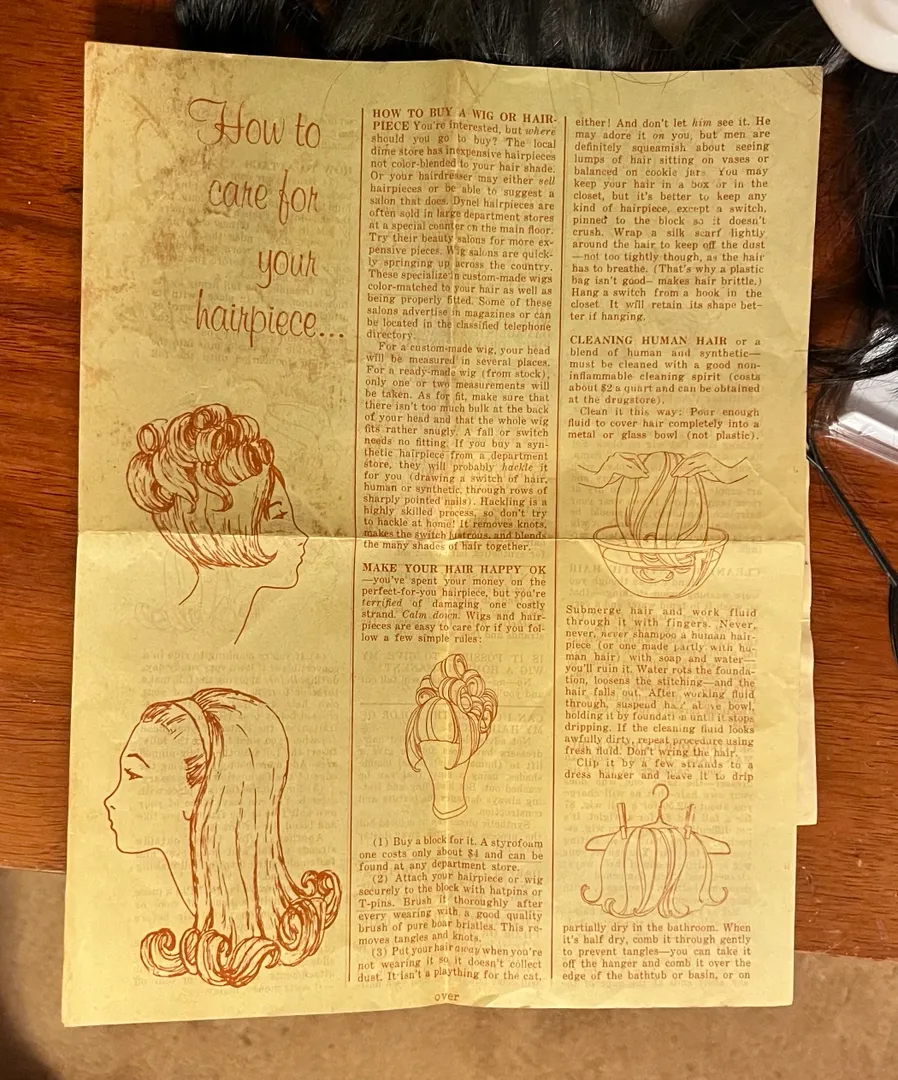 How to
care for
your
hairpiece...
HOW TO BUY A WIG OR HAIR-
PIECE You're interested, but where
should you go to buy? The local
dime store has inexpensive hairpieces
not color-blended to your hair shade.
Or your hairdresser may either sell
hairpieces or be able to suggest a
salon that does. Dynel hairpieces are
often sold in large department stores
at a special counter on the main floor.
Try their beauty salons for more ex-
pensive pieces. Wig salons are quick-
ly springing up across the country.
These specialize in custom-made wigs
color-matched to your hair as well as
being properly fitted. Some of these
salons advertise in magazines or can
be located in the classified telephone
directory.
For a custom-made wig, your head
will be measured in several places.
For a ready-made wig (from stock),
only one or two measurements will
be taken. As for fit, make sure that
there isn't too much bulk at the back
of your head and that the whole wig
fits rather snugly. A fall or switch
needs no fitting. If you buy a syn-
thetic hairpiece from a department
store, they will probably hackle it
for you (drawing a switch of hair,
human or synthetic, through rows of
sharply pointed nails). Hackling is a
highly skilled process, so don't try
to hackle at home! It removes knots,
makes the switch lustrous, and blends
the many shades of hair together.
MAKE YOUR HAIR HAPPY OK
—you've spent your money on the
perfect-for-you hairpiece, but you're
terrified of damaging one costly
strand. Calm down. Wigs and hair-
pieces are easy to care for if you fol-
low a few simple rules:
(1) Buy a block for it. A styrofoam
one costs only about $4 and can be
found at any department store.
(2) Attach your hairpiece or wig
securely to the block with hatpins or
T-pins. Brush it thoroughly after
every wearing with a good quality
brush of pure boar bristles. This re-
moves tangles and knots.
(3) Put your hair away when you're
not wearing it so it doesn't collect
dust. It isn't a plaything for the cat,
over
either! And don't let him see it. He
may adore it on you, but men are
definitely squeamish about seeing
lumps of hair sitting on vases or
balanced on cookie jars. You may
keep your hair in a box or in the
closet, but it's better to keep any
kind of hairpiece, except a switch,
pinned to the block so it doesn't
crush. Wrap a silk scarf lightly
around the hair to keep off the dust
—not too tightly though, as the hair
has to breathe. (That's why a plastic
bag isn't good—makes hair brittle.)
Hang a switch from a hook in the
closet. It will retain its shape bet-
ter if hanging.
CLEANING HUMAN HAIR or a
blend of human and synthetic—
must be cleaned with a good non-
inflammable cleaning spirit (costs
about $2 a quart and can be obtained
at the drugstore).
Clean it this way: Pour enough
fluid to cover hair completely into a
metal or glass bowl (not plastic).
Submerge hair and work fluid
through it with fingers. Never,
never, never shampoo a human hair-
piece (or one made partly with hu-
man hair) with soap and water—
you'll ruin it. Water rots the founda-
tion, loosens the stitching—and the
hair falls out. After working fluid
through, suspend hair above bowl,
holding it by foundation until it stops
dripping. If the cleaning fluid looks
awfully dirty, repeat procedure using
fresh fluid. Don't wring the hair.
Clip it by a few strands to a
dress hanger and leave it to drip
partially dry in the bathroom. When
it's half dry, comb it through gently
to prevent tangles—you can take it
off the hanger and comb it over the
edge of the bathtub or basin, or on